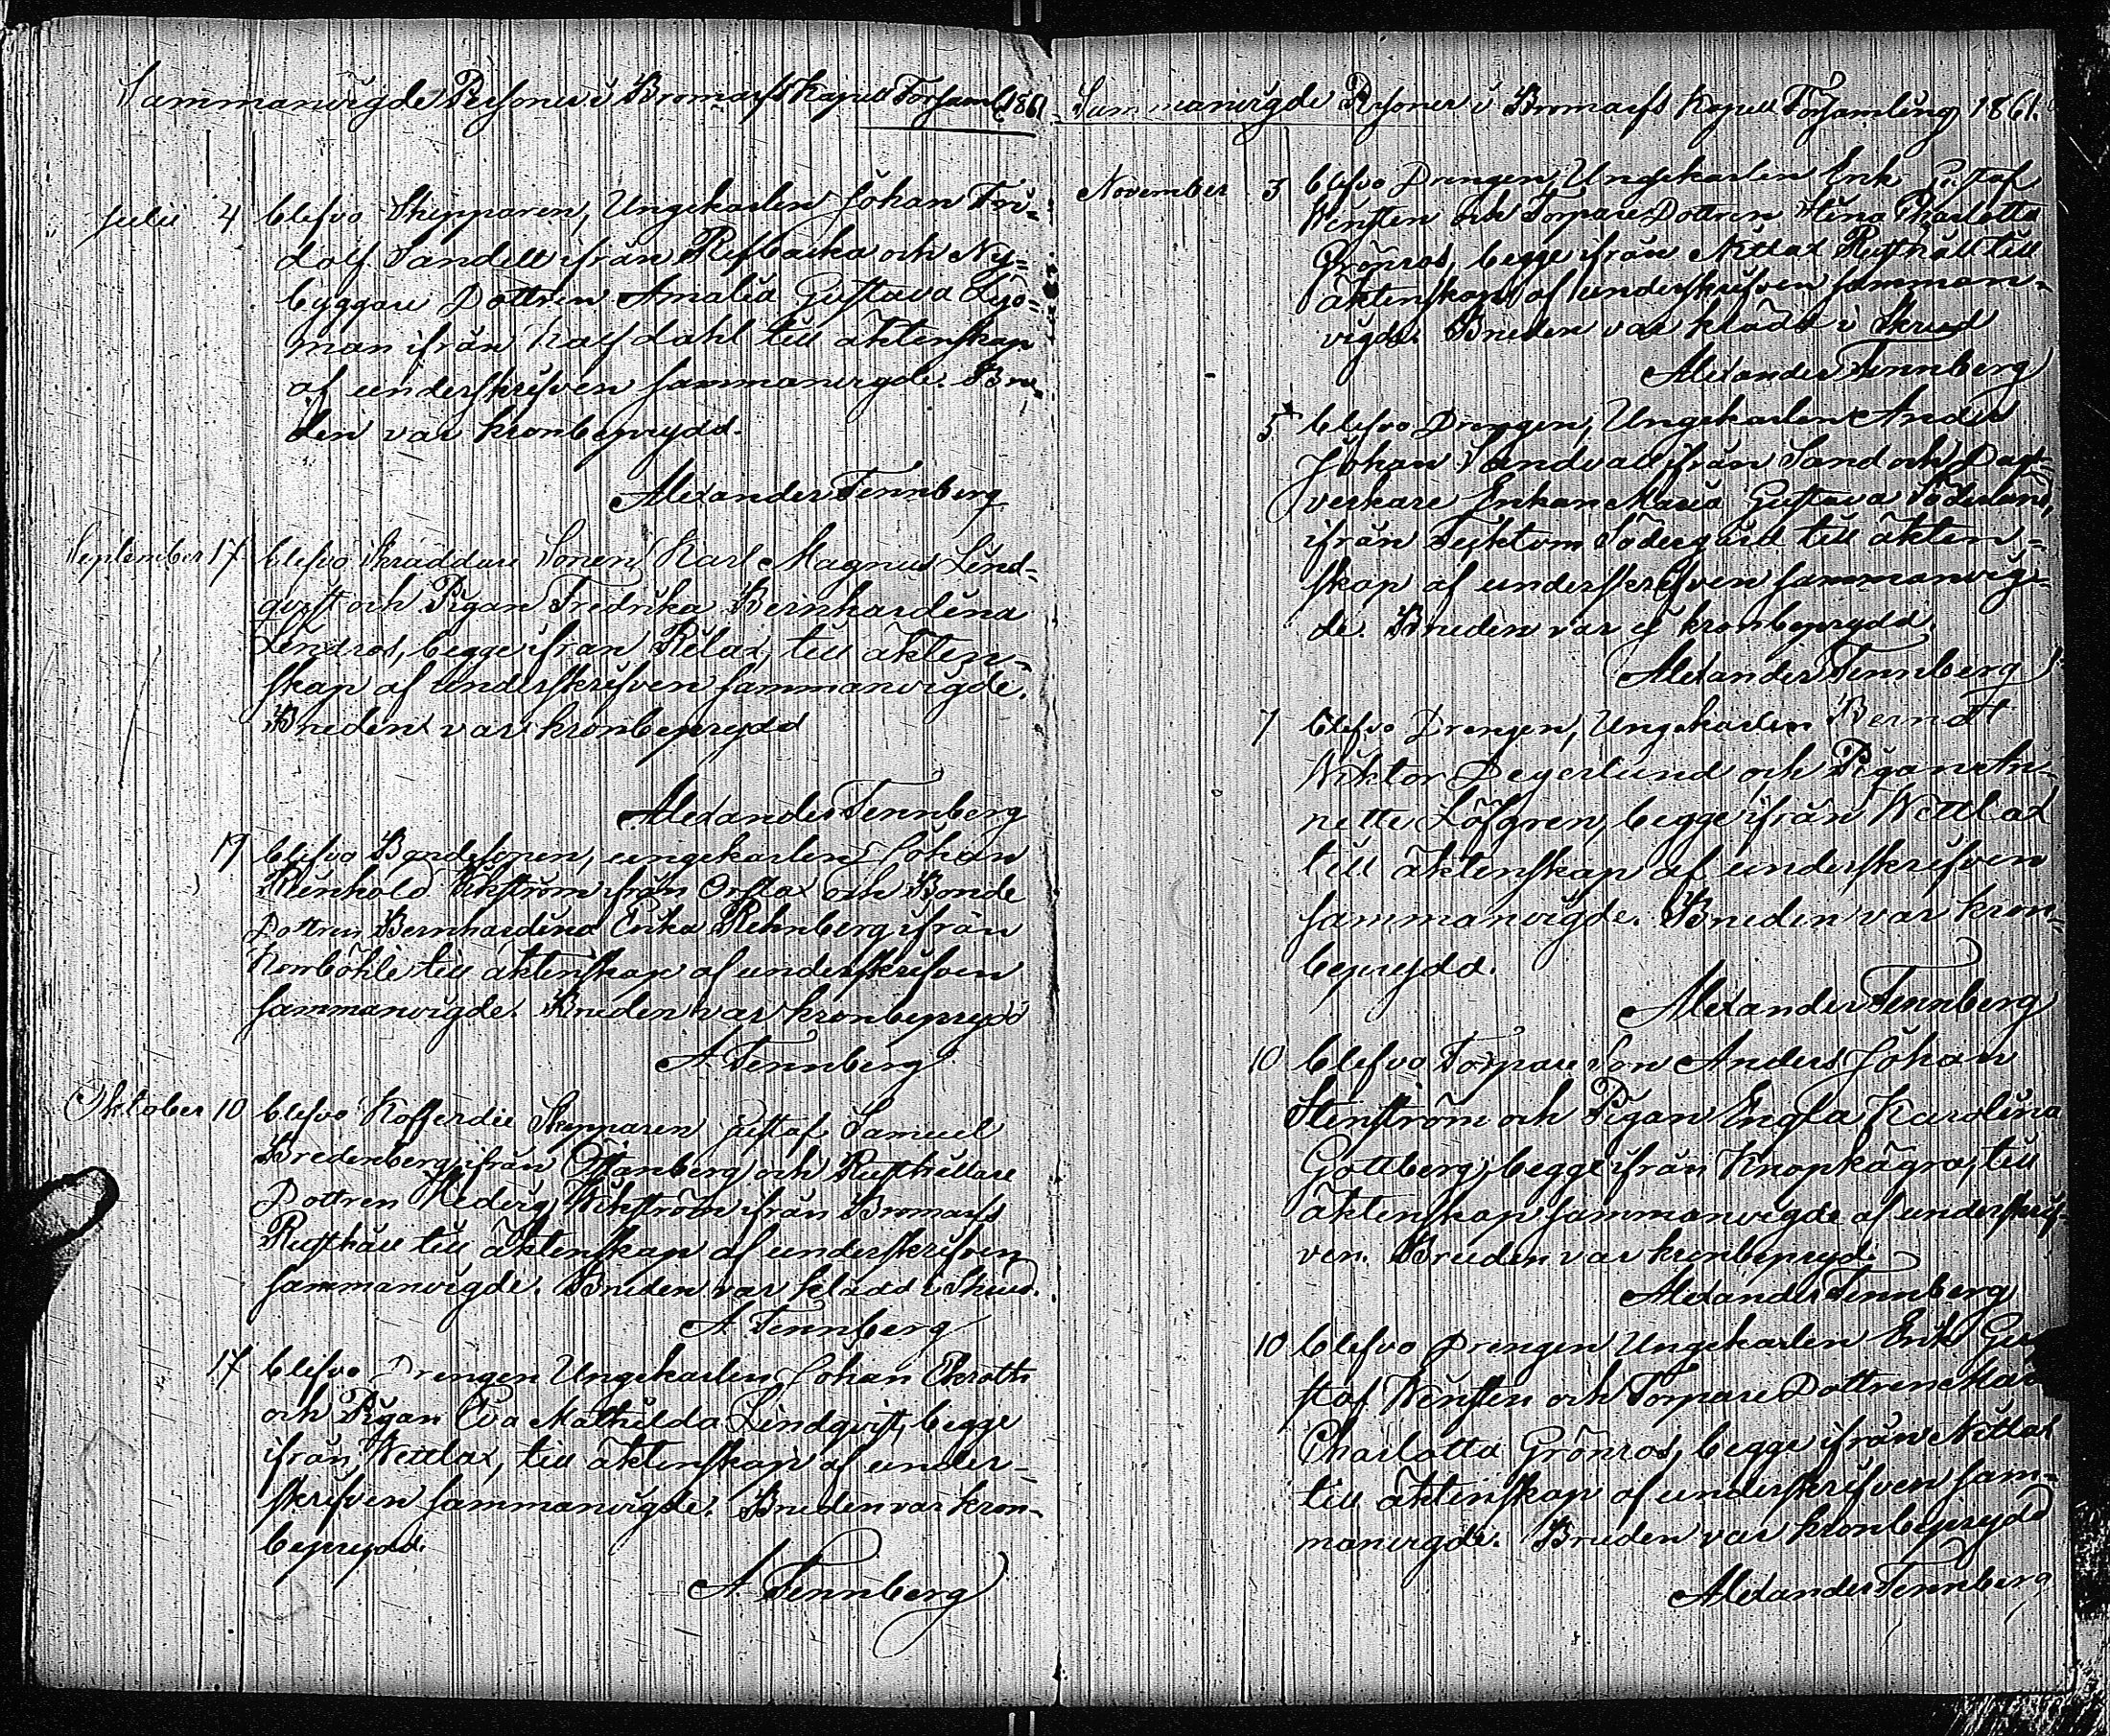 Sammanvigde Personer i Bromarfs Kapell Församl. 1861
Julii 4 Blefvo Skepparen, Ungekarlen Johan Fri=
dolf Sandell ifrån Refbacka och Ny=
byggare Dottren Amalia Gustava Sjö=
man ifrån Kalfdahl till äktenskap
af underskrifven sammanvigde. Bru=
den var kronbeprydd.
Alexander Tennberg
September 17 Blefvo Skräddare Sonen Karl Magnus Lind=
qvist och Pigan Fredrika Bernhardina
Lindros, begge ifrån Rilax, till äkten=
skap af underskrifven sammanvigde.
Bruden var kronbeprydd
Alexander Tennberg
19 Blefvo Bondesonen, ungekarlen Johan
Reinhold Wikström ifrån Orslax och Bonde
Dottren Bernhardina Erika Rehnberg ifrån
Norrböhle till äktenskap af underskrifven
sammanvigde. Bruden var kronbeprydd
A. Tennberg
Oktober 10 Blefvo Kofferdie Skepparen Gustaf Samuel
Bredenberg ifrån Östanberg och Rusthållare
Dottren Hedvig Wikström ifrån Bromarfs
Rusthåll till äktenskap af underskrifven
sammanvigde. Bruden var klädd i Skrud.
A. Tennberg
17 Blefvo Drengen Ungekarlen Johan Ekroth
och Pigan Eva Mathilda Lindqvist, begge
ifrån Wettlax, till äktenskap af under=
skrifven sammanvigde. Bruden var kron=
beprydd.
A. Tennberg
Sammanvigde Personer i Bromarfs Kapell Församling 1861.
November 3 Blefvo Drengen, Ungekarlen Erik Gustaf
Winsten och Torpare Dottren Charlotta
Grönros, begge ifrån Nittlax Rusthåll till
äktenskap af underskrifven samman=
vigde. Bruden var klädd i Skrud
Alexander Tennberg
5 Blefvo Drengen, Ungekarlen Anders
Johan Sandvall ifrån Sand och Dag=
verkare Enkan Maria Gustava Söderlund,
ifrån Tecktom Södergård till äkten=
skap af underskrifven sammanvig=
de. Bruden var ej kronbeprydd.
Alexander Tennberg
7 Blefvo Drengen, Ungekarlen Berndt
Wiktor Degerlund och Pigan An=
nette Löfgren, begge ifrån Wettlax
till äktenskap af underskrifven
sammanvigde. Bruden var kron=
beprydd.
Alexander Tennberg
10 Blefvo Torpare Son Anders Johan
Stenström och Pigan Engla Karolina
Gottberg, begge ifrån Knopkägra, till
äktenskap sammanvigde af underskrif=
ven. Bruden var kronbepryd
Alexander Tennberg
10 Blefvo Drengen Ungekarlen Erik Gu
staf Winsten och Torpare Dottren
Charlotta Grönros, begge ifrån Nittlax
till äktenskap af underskrifven sam=
manvigde. Bruden var kronbeprydd
Alexander Tennberg